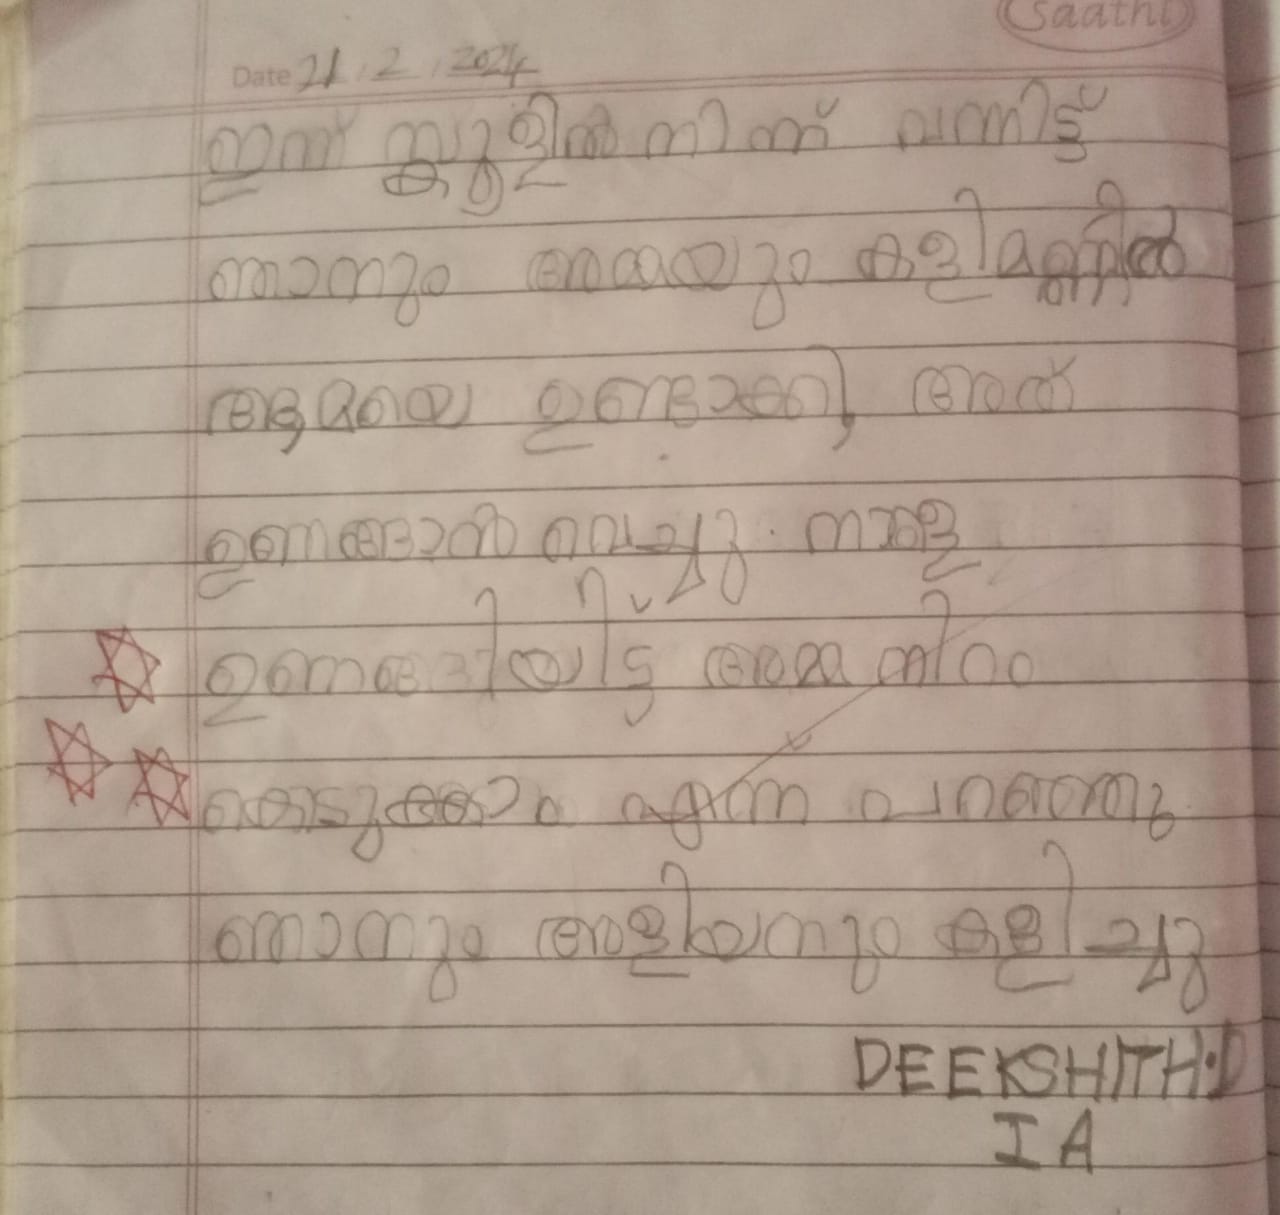 saathi
Date 21.2.2024
ഇന്ന് സ്കൂളിൽ നിന്ന് വന്നിട്ട്
ഞാനും അമ്മയും കളിമണ്ണിൽ
ആമയെ ഉണ്ടാക്കി, അത്
ഉണങ്ങാൻ വെച്ചു. നാളെ
ഉണങ്ങിയിട്ട് അമ്മ നിറം
കൊടുക്കാം എന്ന് പറഞ്ഞു
ഞാനും അളിയനും കളിച്ചു
DEEKSHITH.D
I A